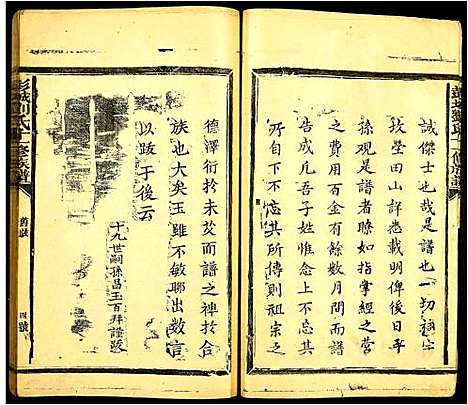 彭城劉氏十修族譜
誠傑士也哉是譜也一切祠宇
坟塋田山詳悉載明俾後日子
孫觀是譜者瞭如指掌經之營
之用費百金有餘數月間而譜
告成凡吾子姓惟念上不忘其
所自下不忘其所傳則祖宗之
德澤衍於未艾而譜之裨於合
族也大矣玉雖不敏聊出數言
以跋于後云
十九世嗣孫昌玉百拜謹跋
彭城刘氏十修族譜
舊跋
四號